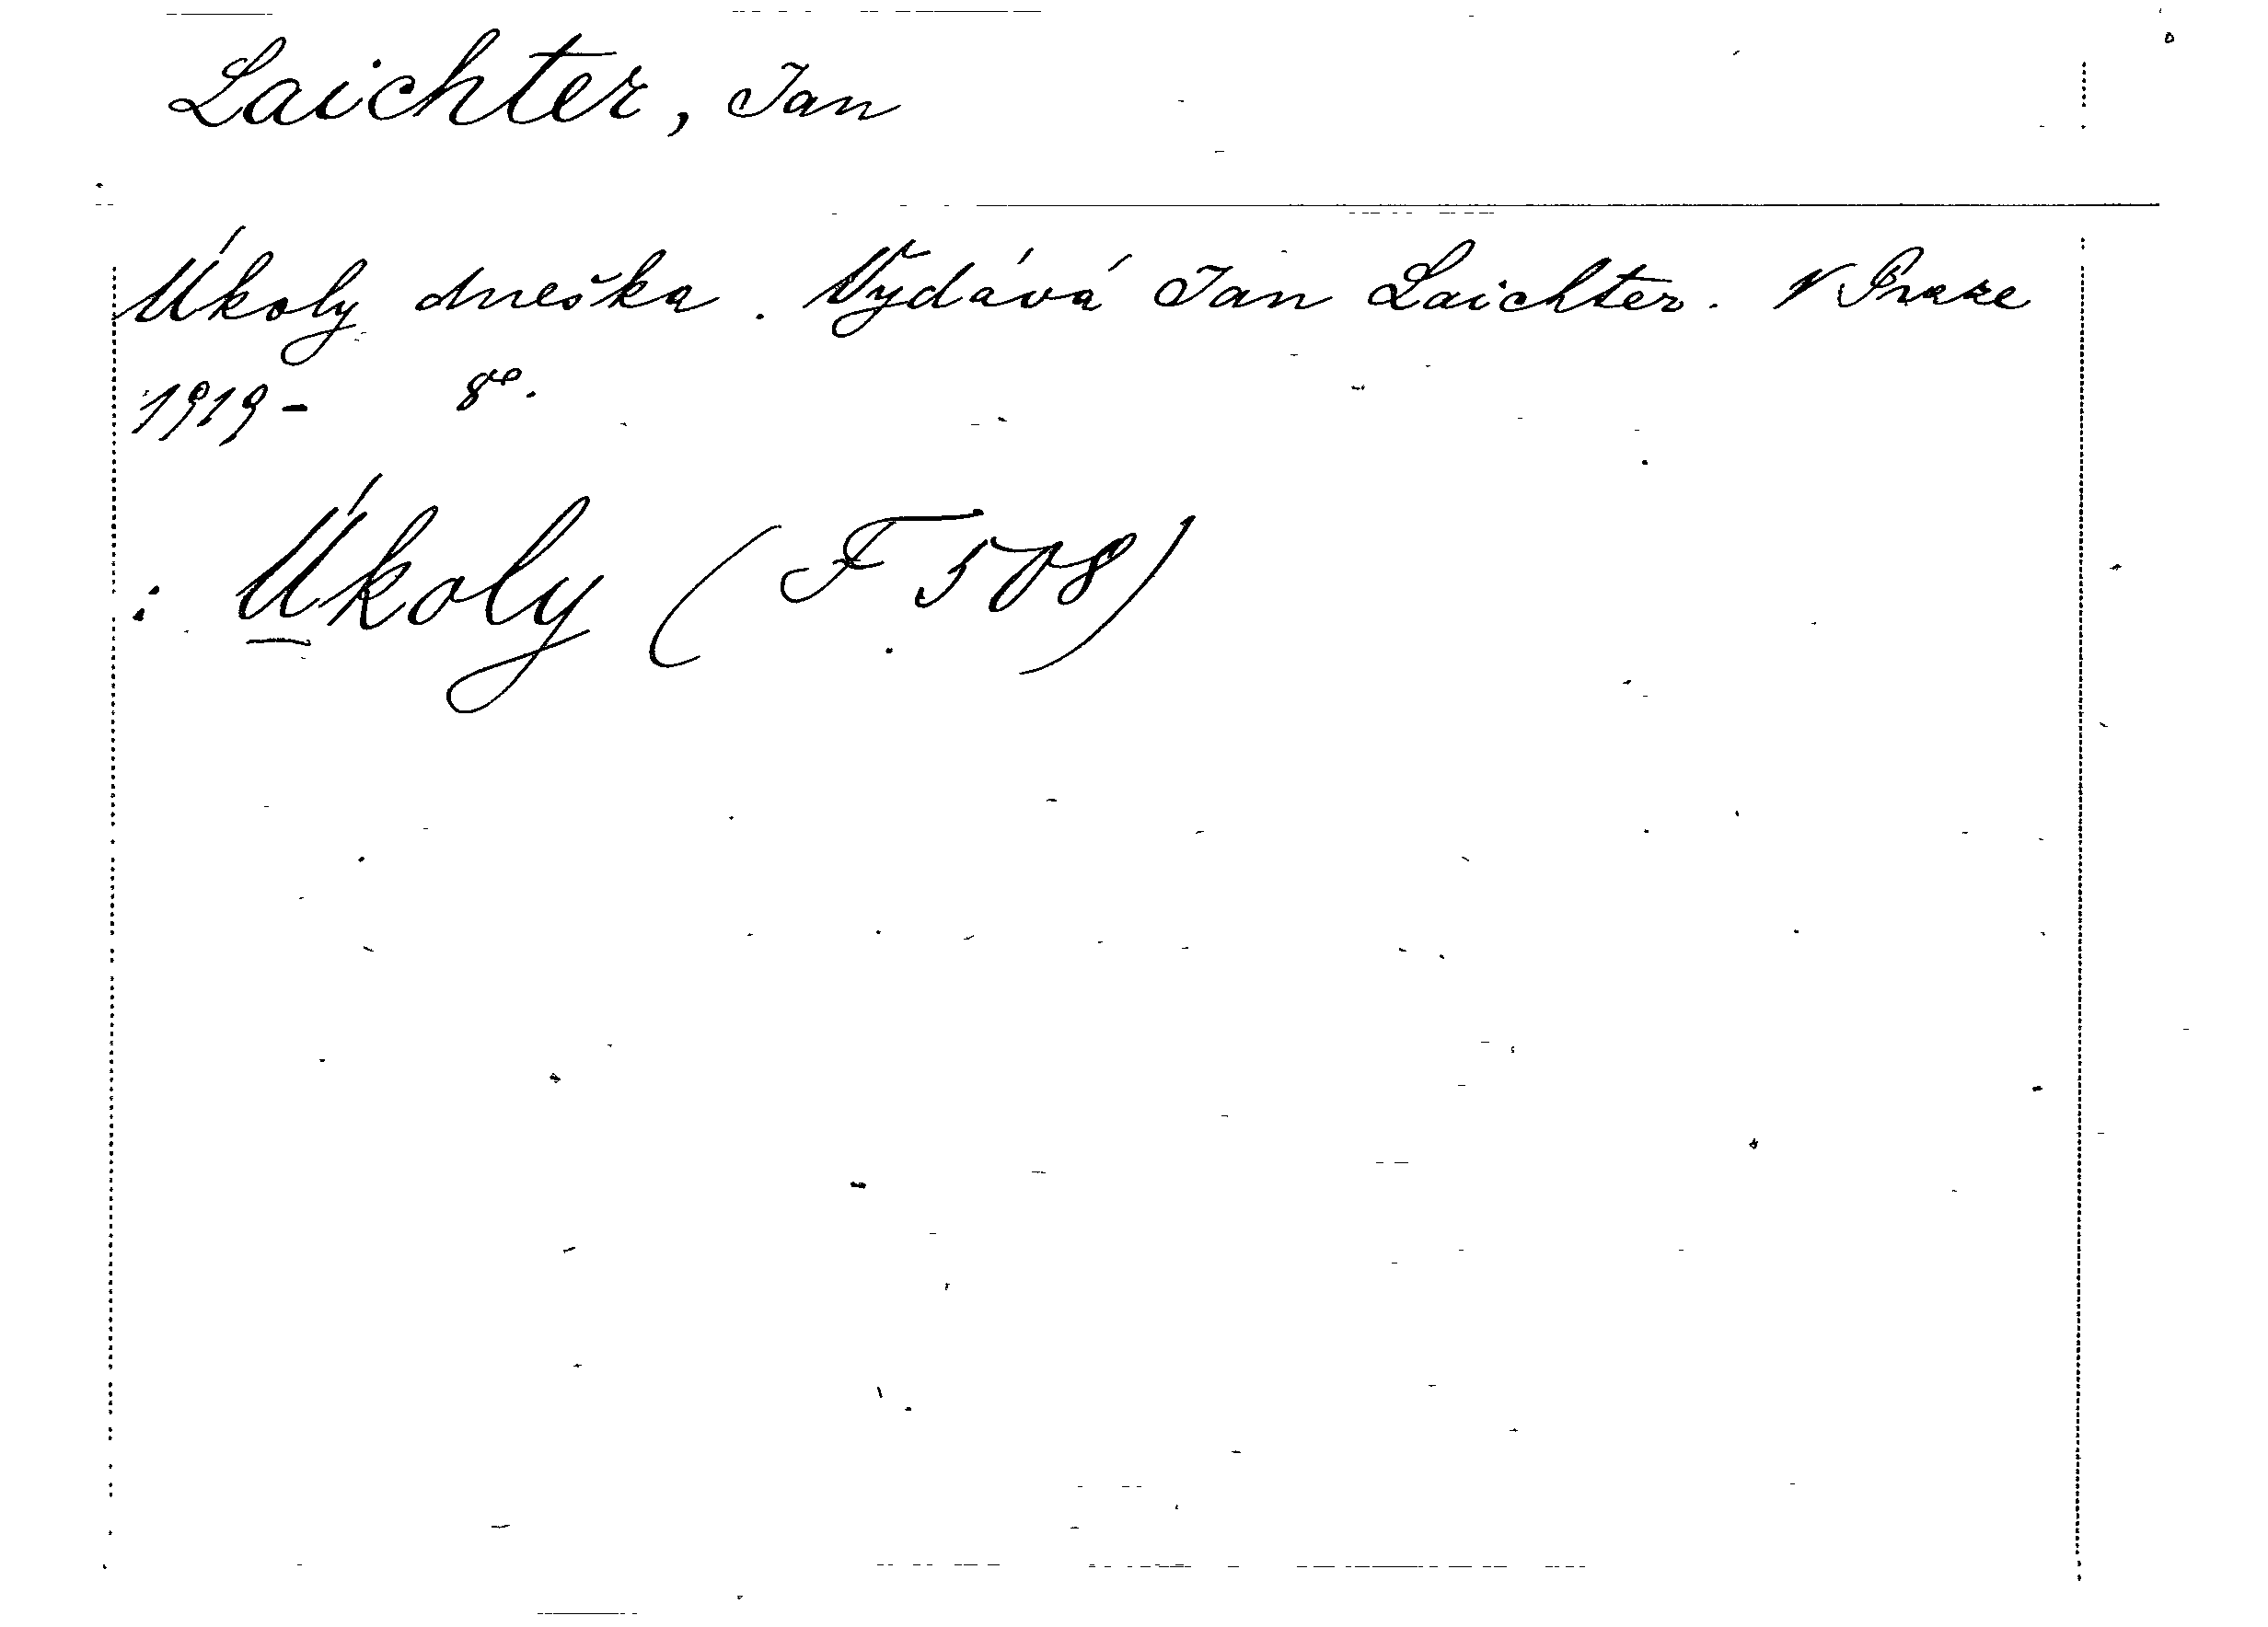 Laichter, Jan
Úkoly dneška. Vydává Jan Laichter. V Praze
1919- 8°.
: Úkoly (F 508)